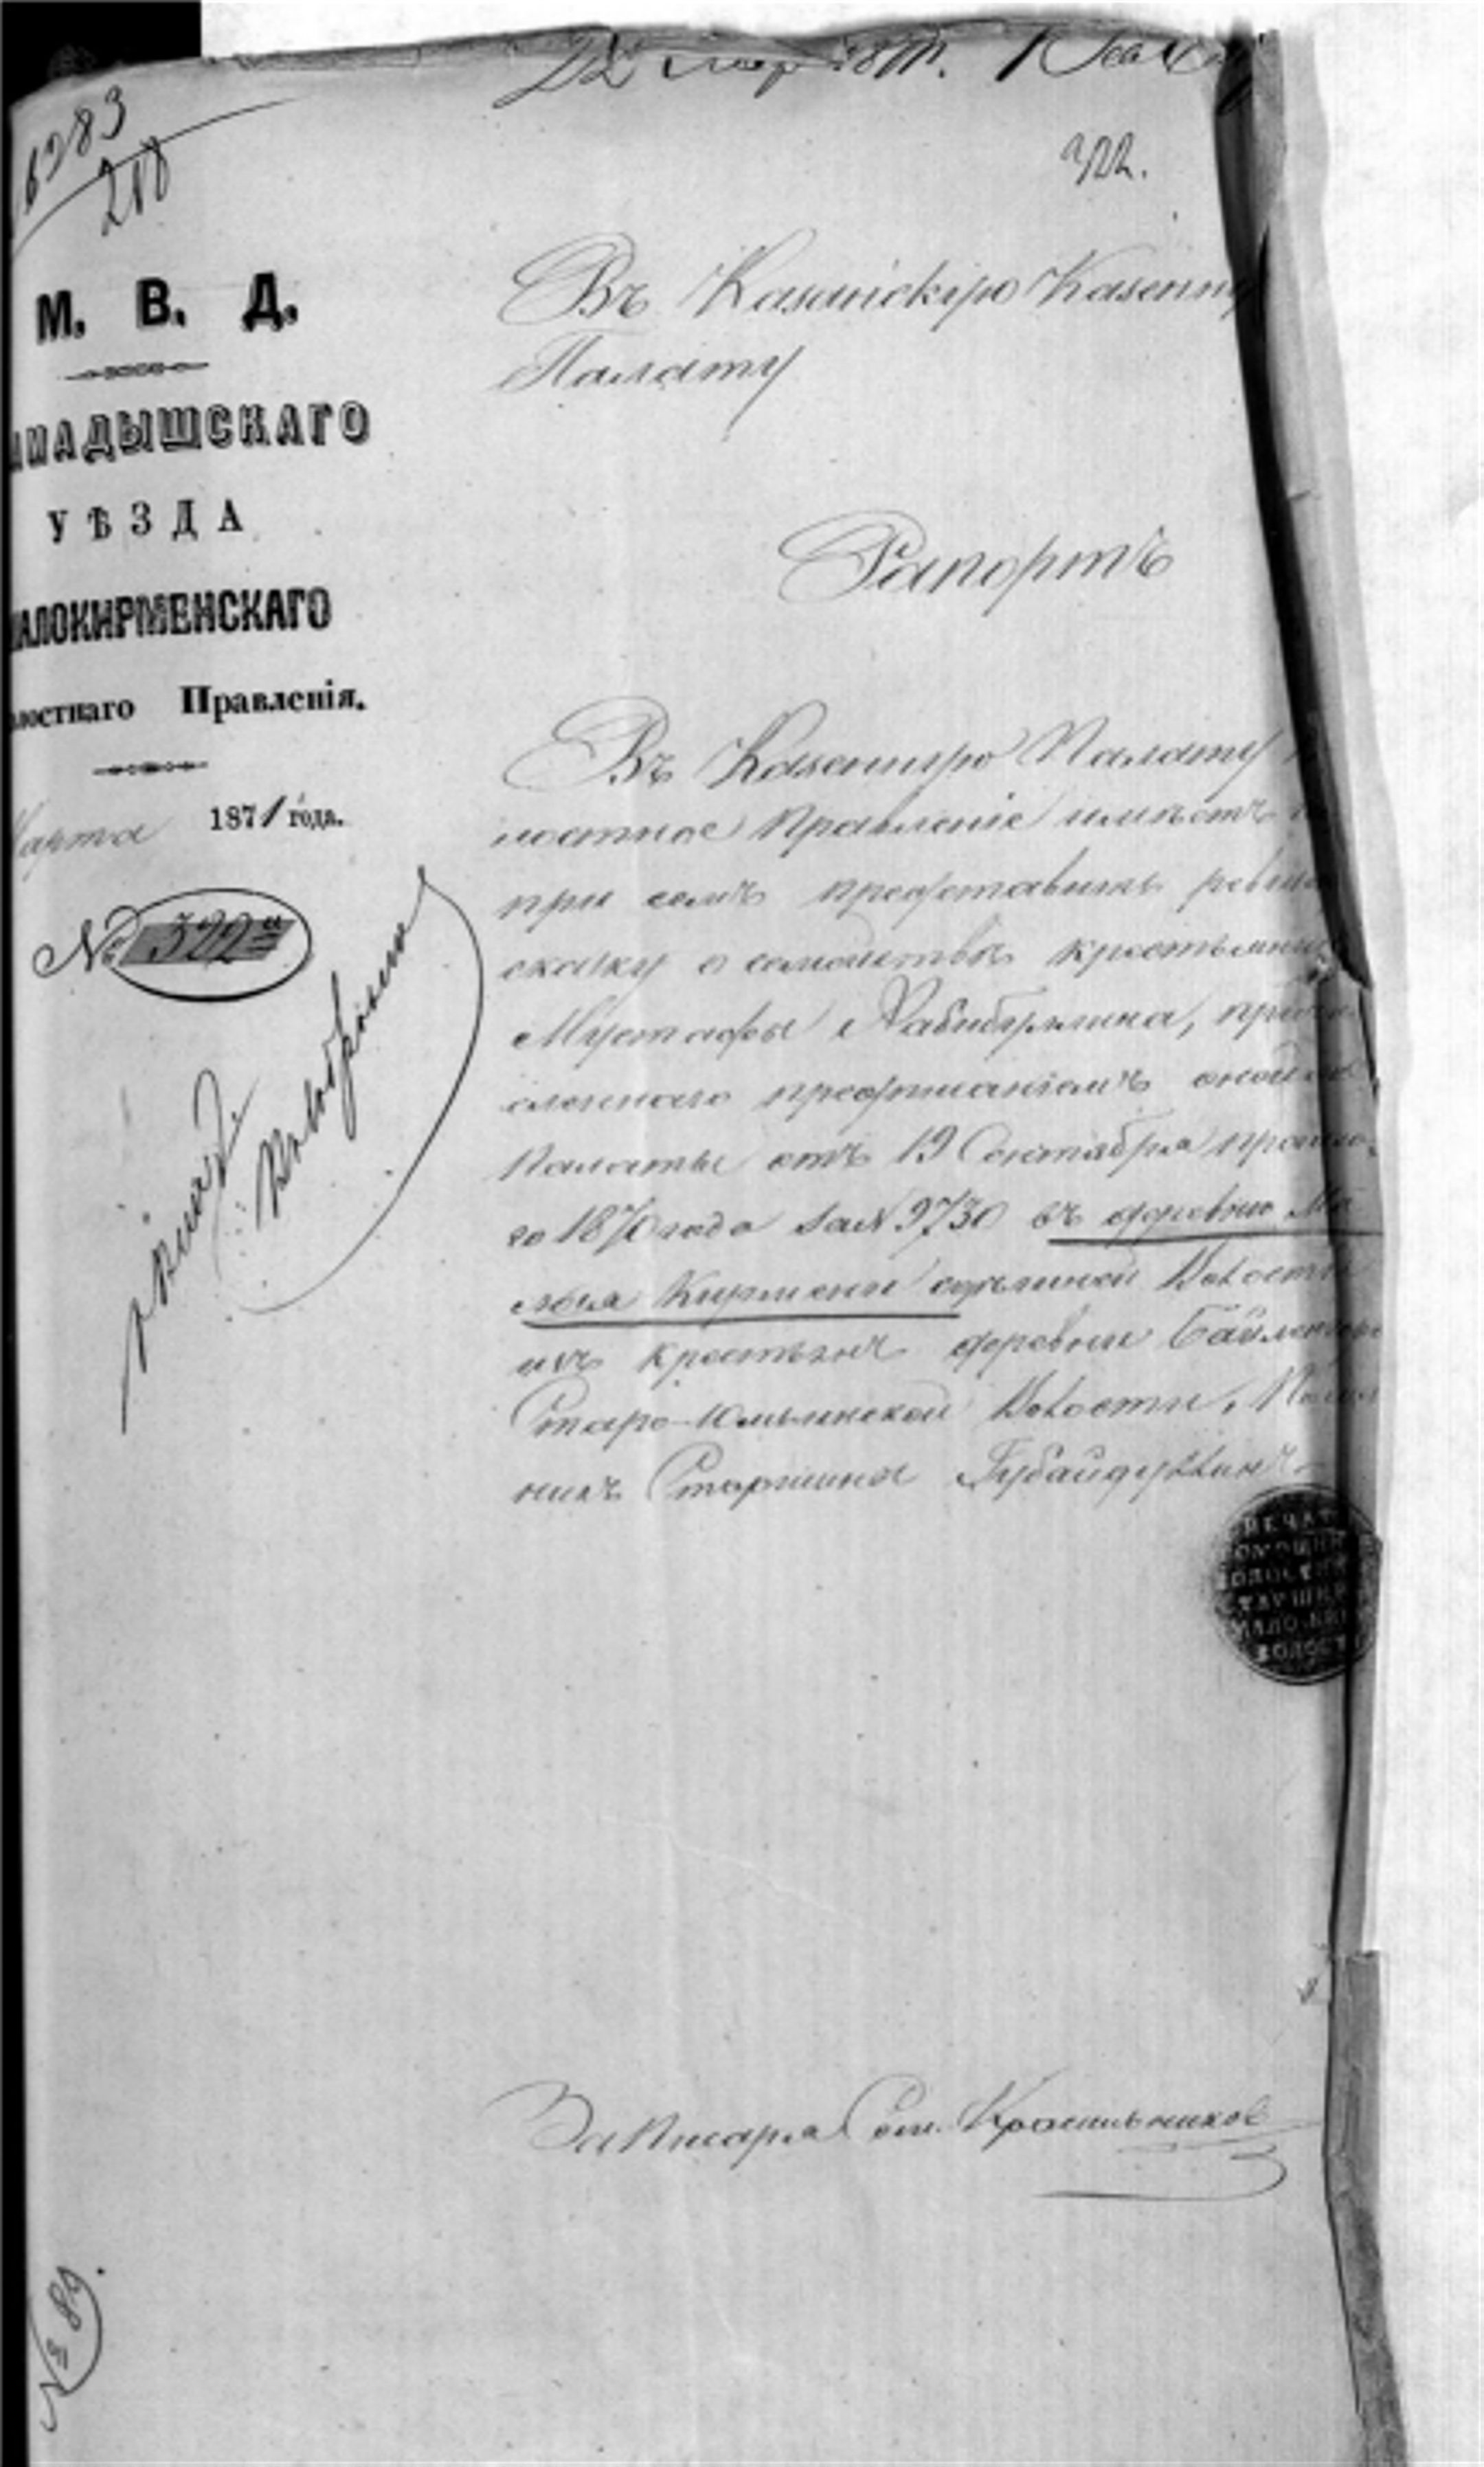 22 мар 1871.
322.
6283
218
М. В. Д.
МАДЫШСКАГО
УѢЗДА
АЛОКИРМЕНСКАГО
лостнаго Правленія.
арта 1871 года.
№ 322
Въ Казанскую Казенну
Палату
Рапортъ
Въ Казенную Палату
лостное Правленіе имѣетъ
при семъ представить ревиз
сказку о семействѣ крестьянина
Мустафы Хабибулина, при
сленнаго предписаніемъ оной
Палаты отъ 19 Сентября прошло
го 1870 года за № 9730 въ деревню Ма
лыя Кирмени здѣшней Волости
изъ крестьянъ деревни Байлянгаръ
Старо-Юмьинской Волости, Помощ
никъ Старшина Губайдуллинъ
ПЕЧАТ
ОМОЩНИ
ОЛОСТН
СТАРШИН
МАЛО-КИ
ВОЛОСТ
За Писаря Сем. Красильников
№ 89.